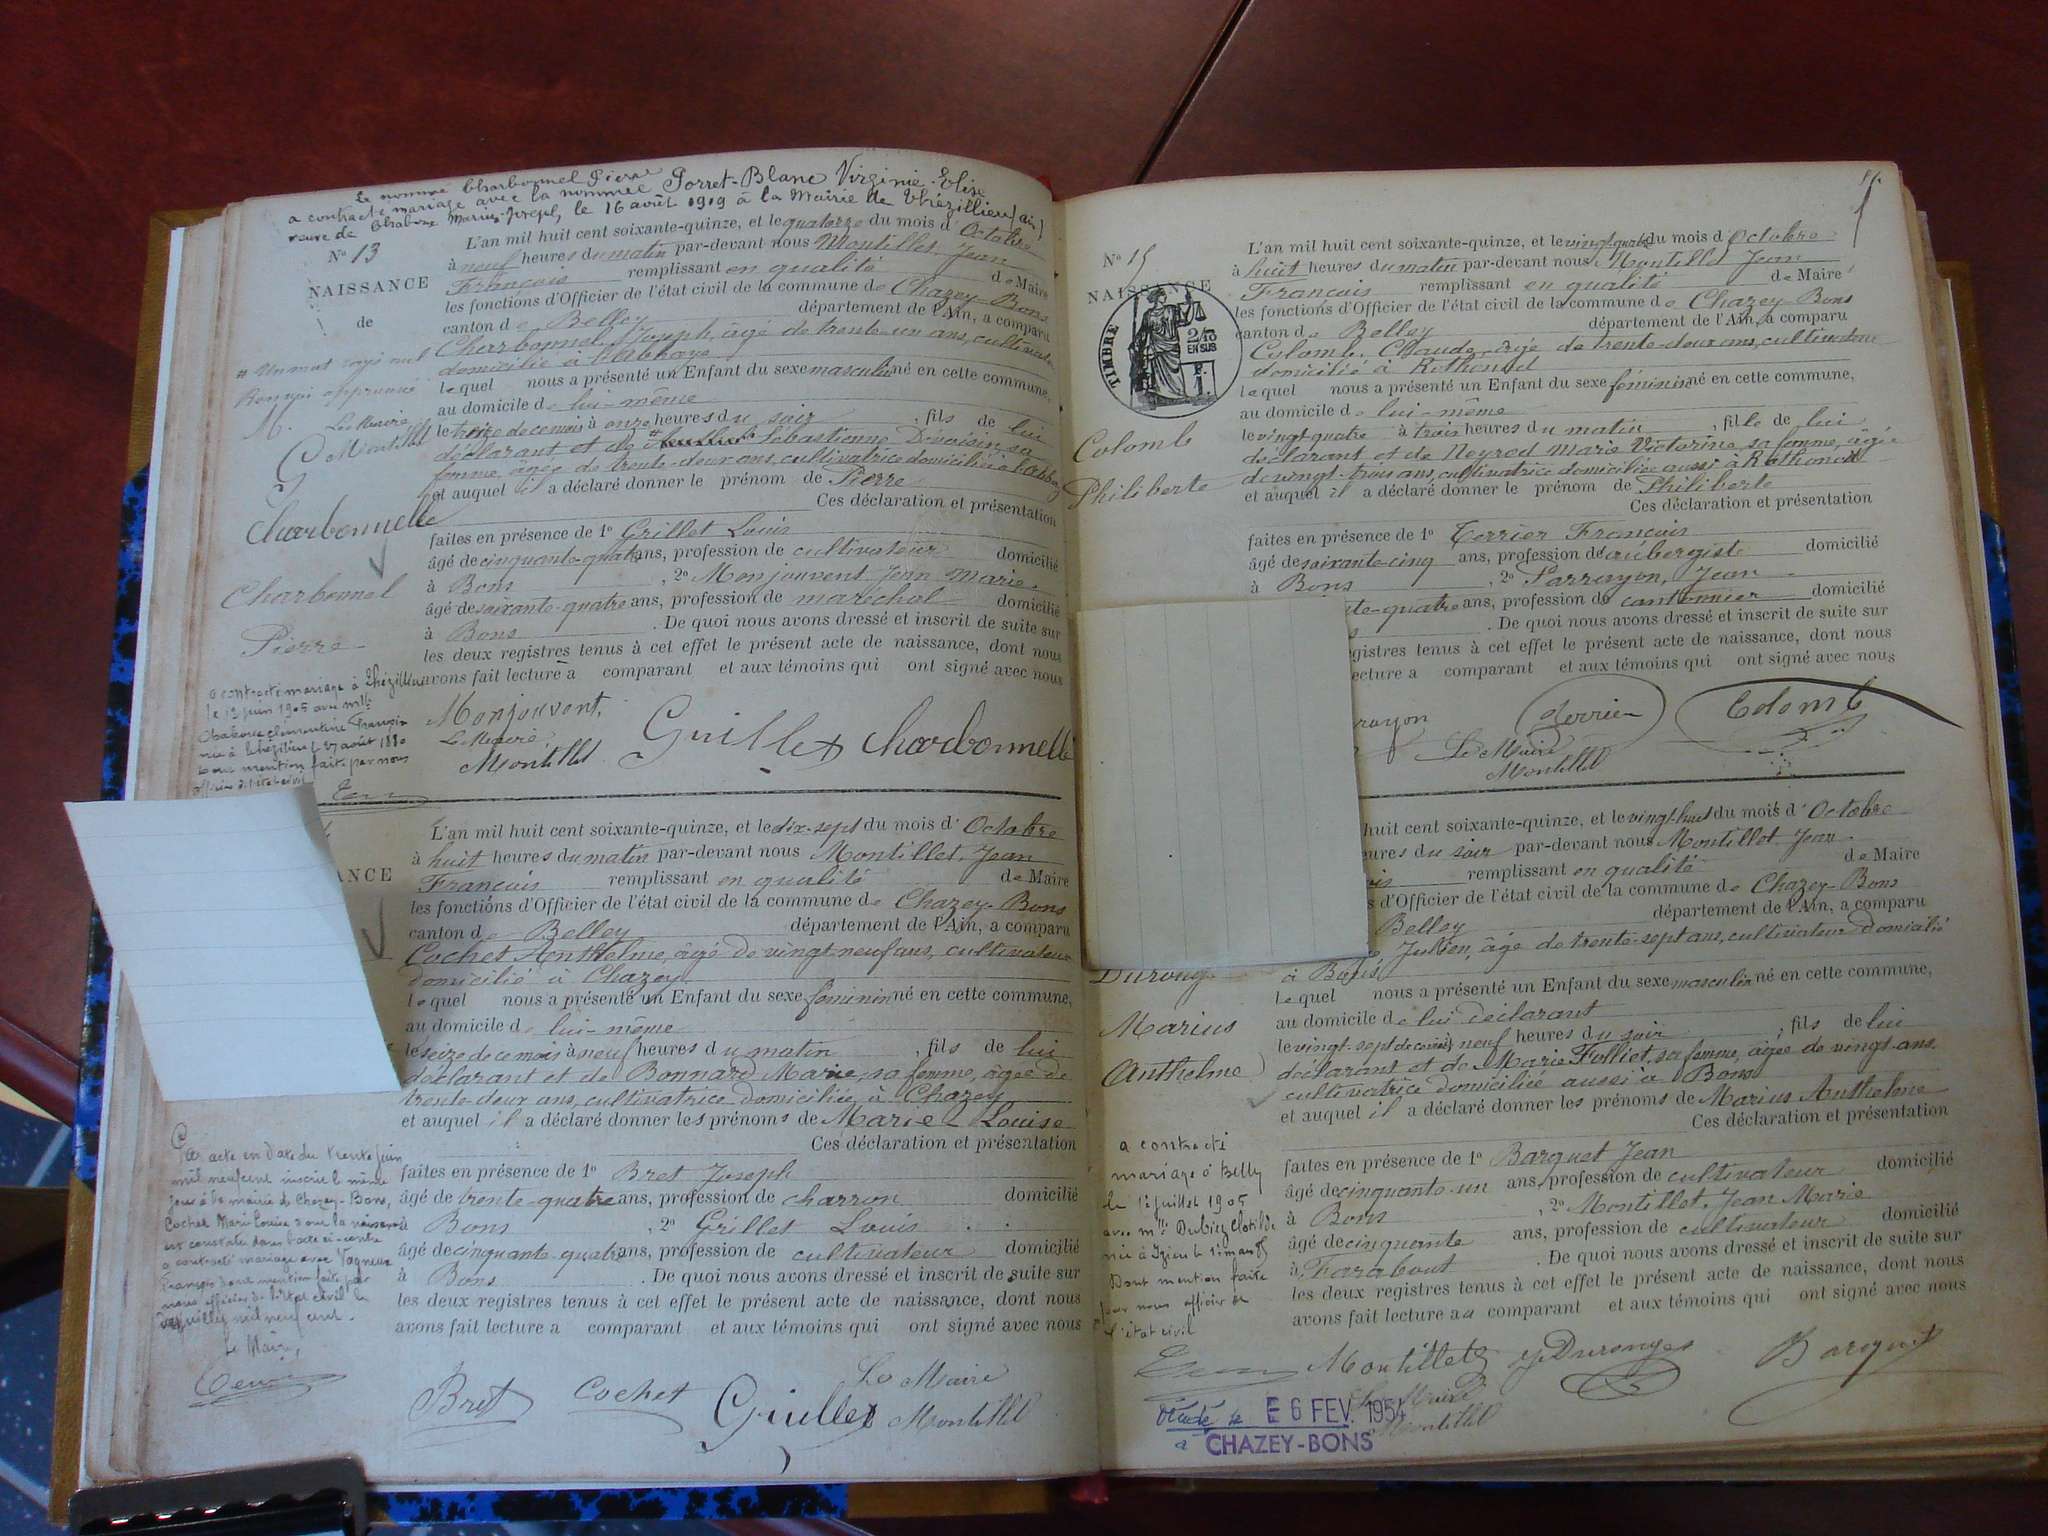 Le nommé Charbonnel Pierre
a contracté mariage avec la nommée Porret-Blanc Virginie-Elise
veuve de Chabone Marius-Joseph, le 16 avril 1919 à la Mairie de Thézillieu (Ain)
N° 13
NAISSANCE
de
# Un mot rayé nul
approuvé
Le Maire
Montillet
Charbonnelle
Charbonnel
Pierre
a contracté mariage à Thézillieu
le 13 juin 1905 avec Mlle
Clémentine
née à Thézillieu le 27 août 1880
Dont mention faite par nous
officier de l'état civil
L'an mil huit cent soixante-quinze, et le quatorze du mois d'Octobre
à neuf heures du matin par-devant nous Montillet, Jean
François remplissant en qualité de Maire
les fonctions d'Officier de l'état civil de la commune de Chazey-Bons
canton de Belley département de l'Ain, a comparu
Charbonnel Joseph, âgé de trente-un ans, cultivateur
domicilié à l'Abbaye
lequel nous a présenté un Enfant du sexe masculin né en cette commune,
au domicile de lui-même
le treize de ce mois à onze heures du soir, fils de lui
déclarant et de # Sébastienne Devoisin, sa
femme, âgée de trente-deux ans, cultivatrice domiciliée à l'Abbaye
et auquel il a déclaré donner le prénom de Pierre
Ces déclaration et présentation
faites en présence de 1° Grillet Louis
âgé de cinquante-quatre ans, profession de cultivateur domicilié
à Bons, 2° Monjouvent Jean Marie,
âgé de soixante-quatre ans, profession de maréchal domicilié
à Bons. De quoi nous avons dressé et inscrit de suite sur
les deux registres tenus à cet effet le présent acte de naissance, dont nous
avons fait lecture à comparant et aux témoins qui ont signé avec nous
Monjouvent,
Le Maire
Montillet
Grillet Charbonnelle
ANCE
L'an mil huit cent soixante-quinze, et le dix-sept du mois d'Octobre
à huit heures du matin par-devant nous Montillet, Jean
François remplissant en qualité de Maire
les fonctions d'Officier de l'état civil de la commune de Chazey-Bons
canton de Belley département de l'Ain, a comparu
Cochet Anthelme, âgé de vingt-neuf ans, cultivateur
domicilié à Chazey
lequel nous a présenté un Enfant du sexe féminin né en cette commune,
au domicile de lui-même
le seize de ce mois à neuf heures du matin, fils de lui
déclarant et de Bonnard Marie, sa femme, âgée de
trente-deux ans, cultivatrice domiciliée à Chazey
et auquel il a déclaré donner les prénoms de Marie Louise
Ces déclaration et présentation
faites en présence de 1° Bret Joseph
âgé de trente-quatre ans, profession de charron domicilié
à Bons, 2° Grillet Louis
âgé de cinquante-quatre ans, profession de cultivateur domicilié
à Bons. De quoi nous avons dressé et inscrit de suite sur
les deux registres tenus à cet effet le présent acte de naissance, dont nous
avons fait lecture a comparant et aux témoins qui ont signé avec nous
Par acte en date du trente juin
mil neuf cent inscrit le même
jour à la mairie de Chazey-Bons,
Cochet Marie Louise dont la naissance
est constatée dans l'acte ci-contre
a contracté mariage avec
François dont mention faite par
nous officier de l'état civil le
juillet mil neuf cent.
Le Maire,
Bret Cochet Grillet
Le Maire
Montillet
N° 15
NAISSANCE
TIMBRE
2/10
EN SUS
Colomb
Philiberte
L'an mil huit cent soixante-quinze, et le vingt-quatre du mois d'Octobre
à huit heures du matin par-devant nous Montillet Jean
François remplissant en qualité de Maire
les fonctions d'Officier de l'état civil de la commune de Chazey-Bons
canton de Belley département de l'Ain, a comparu
Colomb, Claude, âgé de trente-deux ans, cultivateur
domicilié à Rothonod
lequel nous a présenté un Enfant du sexe féminin né en cette commune,
au domicile de lui-même
le vingt-quatre à trois heures du matin, fille de lui
déclarant et de Neyrod Marie Victorine, sa femme, âgée
de vingt-trois ans, cultivatrice domiciliée aussi à Rothonod
et auquel il a déclaré donner le prénom de Philiberte
Ces déclaration et présentation
faites en présence de 1° Terrier François
âgé de soixante-cinq ans, profession de aubergiste domicilié
à Bons, 2° Parrayon, Jean
te-quatre ans, profession de cantonnier domicilié
. De quoi nous avons dressé et inscrit de suite sur
gistres tenus à cet effet le présent acte de naissance, dont nous
ecture a comparant et aux témoins qui ont signé avec nous
rayon Terrier Colomb
Le Maire
Montillet
huit cent soixante-quinze, et le vingt-huit du mois d'Octobre
eures du soir par-devant nous Montillet Jean
ois remplissant en qualité de Maire
s d'Officier de l'état civil de la commune de Chazey-Bons
Belley département de l'Ain, a comparu
Julien, âgé de trente-sept ans, cultivateur domicilié
à Bons
lequel nous a présenté un Enfant du sexe masculin né en cette commune,
au domicile de lui déclarant
le vingt-sept de ce mois neuf heures du soir, fils de lui
déclarant et de Marie Folliet, sa femme, âgée de vingt ans,
cultivatrice domiciliée aussi à Bons
et auquel il a déclaré donner les prénoms de Marius Anthelme
Ces déclaration et présentation
faites en présence de 1° Barquet Jean
âgé de cinquante-un ans, profession de cultivateur domicilié
à Bons, 2° Montillet, Jean Marie
âgé de cinquante ans, profession de cultivateur domicilié
à Farabout. De quoi nous avons dressé et inscrit de suite sur
les deux registres tenus à cet effet le présent acte de naissance, dont nous
avons fait lecture au comparant et aux témoins qui ont signé avec nous
Marius
Anthelme
a contracté
mariage à Belley
le 1er juillet 1905
avec Mlle Clotilde
née à Izieu le
Dont mention faite
par nous officier de
l'état civil
Montillet Barquet
Le Maire
Montillet
E 6 FEV. 1954
à CHAZEY-BONS